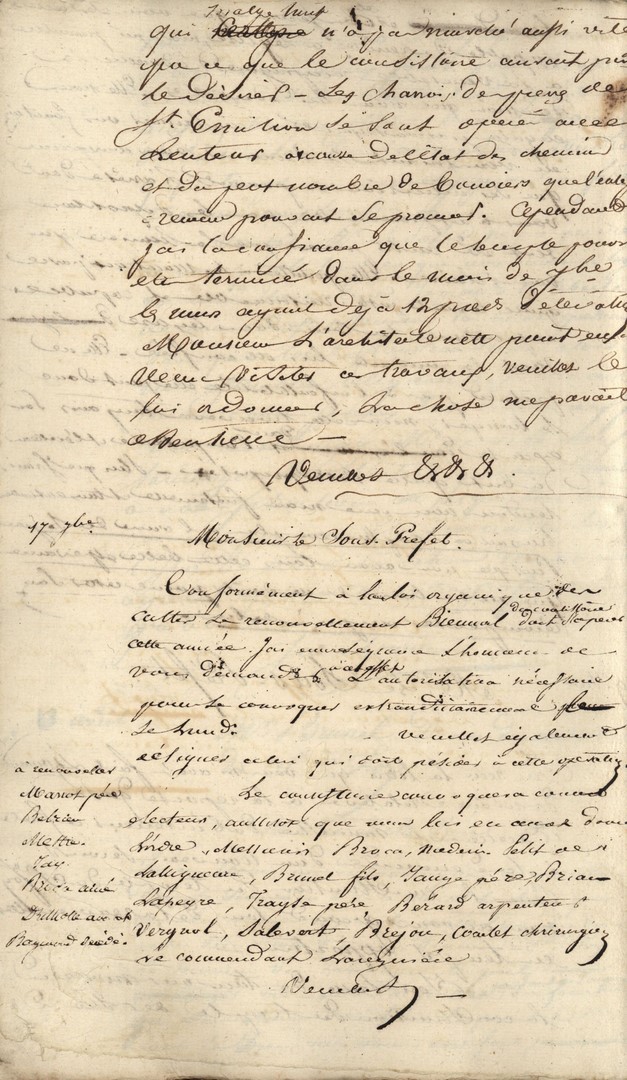 qui n'a pas marché aussi vite
que ce que le consistoire aurait pu
le désirer – Les charrois de pierre de
St. Emilion se sont opéré avec
Lenteur à cause de l'état des chemins
et du petit nombre de bouviers que l'entre
preneur pouvait se procurer. Cependant
j'ai la confiance que le temple pourra
etre terminé dans le mois de 7bre
les murs ayant déjà 12 pieds d'élévation
Monsieur L'architecte n'est point en
venu visiter ces travaux, veuillez le
lui ordonner, la chose me parait
essentielle –
Veuillez &c &c &c.
17 7bre
Monsieur le Sous-Prefet.
Conformément à la loi organique des
cultes Le renouvellement Biennal du consistoire doit s'opérer
cette année. J'ai en conséquence L'honneur de
vous demander à cet effet L'autorisation nécessaire
pour le convoquer extraordinairement
le Lundi veuillez également
désigner celui qui doit présider à cette opération
Le consistoire convoquera comme
electeurs, aussitot que vous lui en aurez donné
L'ordre, Messieurs Broca, medecin Petit de
Brunet fils, père, Brian
Lapeyre, Trayse père, Berard arpenteur
Vergnol, Salevert, Brejou, chirurgien
re commendant Laregnière
Veuillez
à renouveller
Marrot père
Mestre
Broca ainé
Raymond décédé